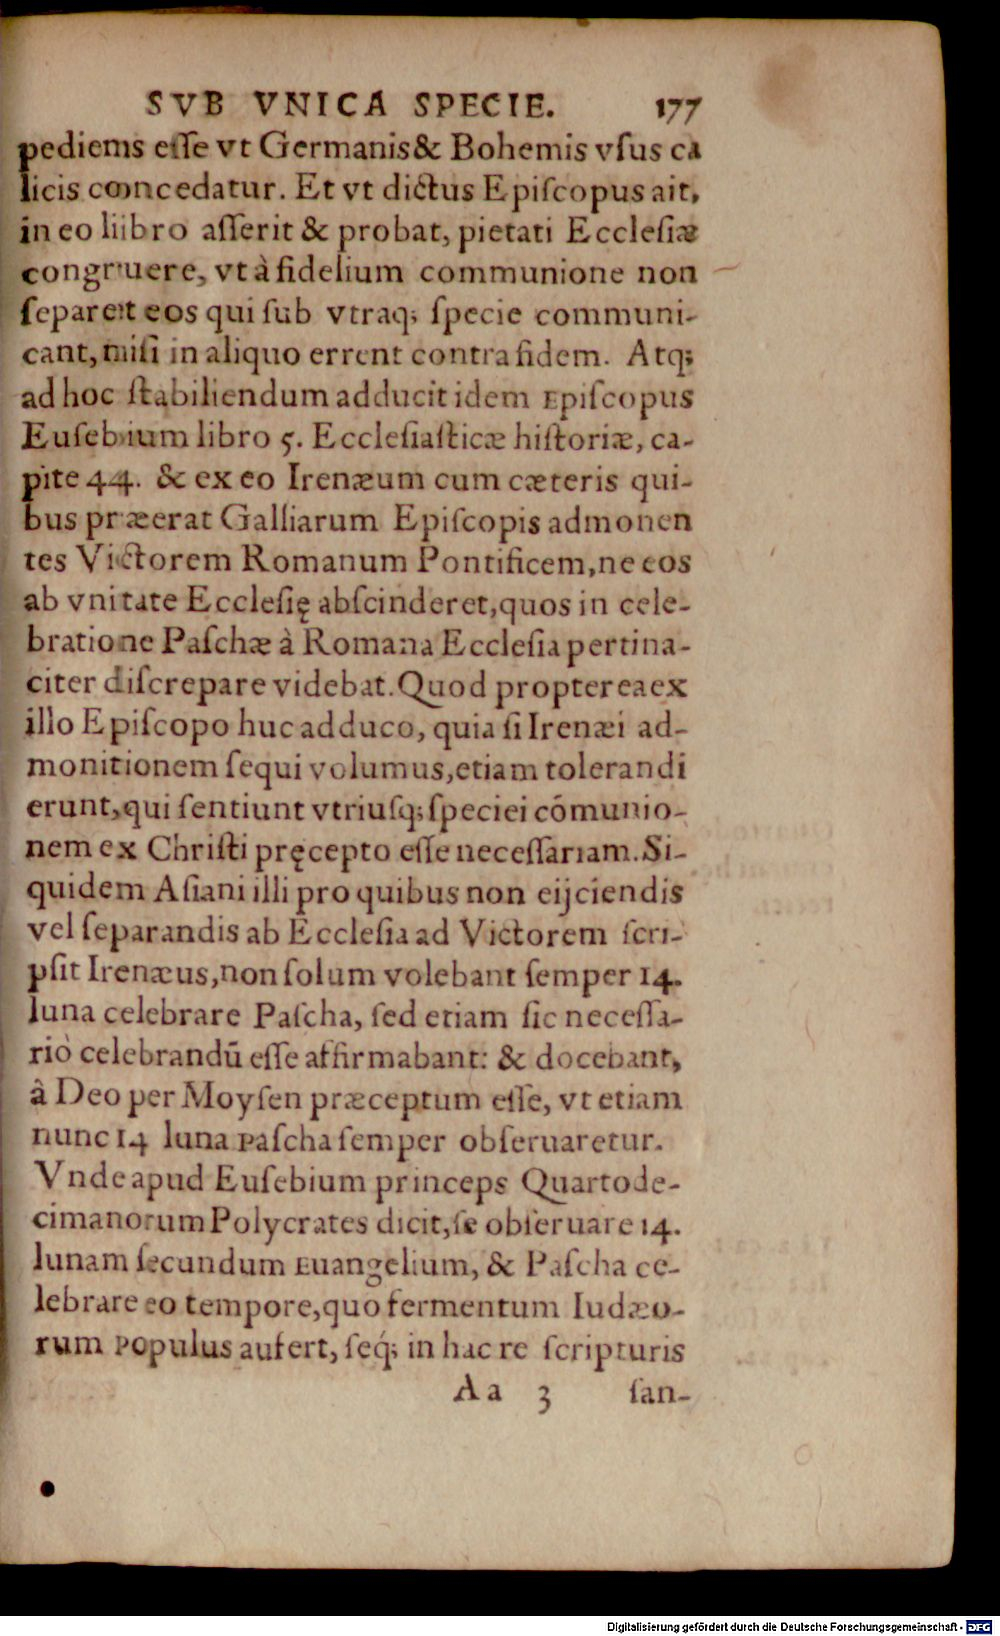 SVB VNICA SPECIE. 177
pediens eſſe vt Germanis & Bohemis vſus ca
licis concedatur. Et vt dictus Epiſcopus ait,
in eo libro aſſerit & probat, pietati Eccleſiæ
congruere, vt à fidelium communione non
ſeparet eos qui ſub vtraq; ſpecie communi-
cant, niſi in aliquo errent contra fidem. Atq;
ad hoc ſtabiliendum adducit idem Epiſcopus
Euſebium libro 5. Eccleſiaſticæ hiſtoriæ, ca-
pite 44. & ex eo Irenæum cum cæteris qui-
bus præerat Galliarum Epiſcopis admonen
tes Victorem Romanum Pontificem, ne eos
ab vnitate Eccleſię abſcinderet, quos in cele-
bratione Paſchæ à Romana Eccleſia pertina-
citer diſcrepare videbat. Quod propterea ex
illo Epiſcopo huc adduco, quia ſi Irenæi ad-
monitionem ſequi volumus, etiam tolerandi
erunt, qui ſentiunt vtriuſq; ſpeciei cōmunio-
nem ex Chriſti pręcepto eſſe neceſſariam. Si-
quidem Aſiani illi pro quibus non eijciendis
vel ſeparandis ab Eccleſia ad Victorem ſcri-
pſit Irenæus, non ſolum volebant ſemper 14.
luna celebrare Paſcha, ſed etiam ſic neceſſa-
riò celebrandū eſſe affirmabant: & docebant,
à Deo per Moyſen præceptum eſſe, vt etiam
nunc 14 luna Paſcha ſemper obſeruaretur.
Vnde apud Euſebium princeps Quartode-
cimanorum Polycrates dicit, ſe obſeruare 14.
lunam ſecundum Euangelium, & Paſcha ce-
lebrare eo tempore, quo fermentum Iudæo-
rum Populus aufert, ſeq́; in hac re ſcripturis
Aa 3 ſan-
Digitalisierung gefördert durch die Deutsche Forschungsgemeinschaft - DFG